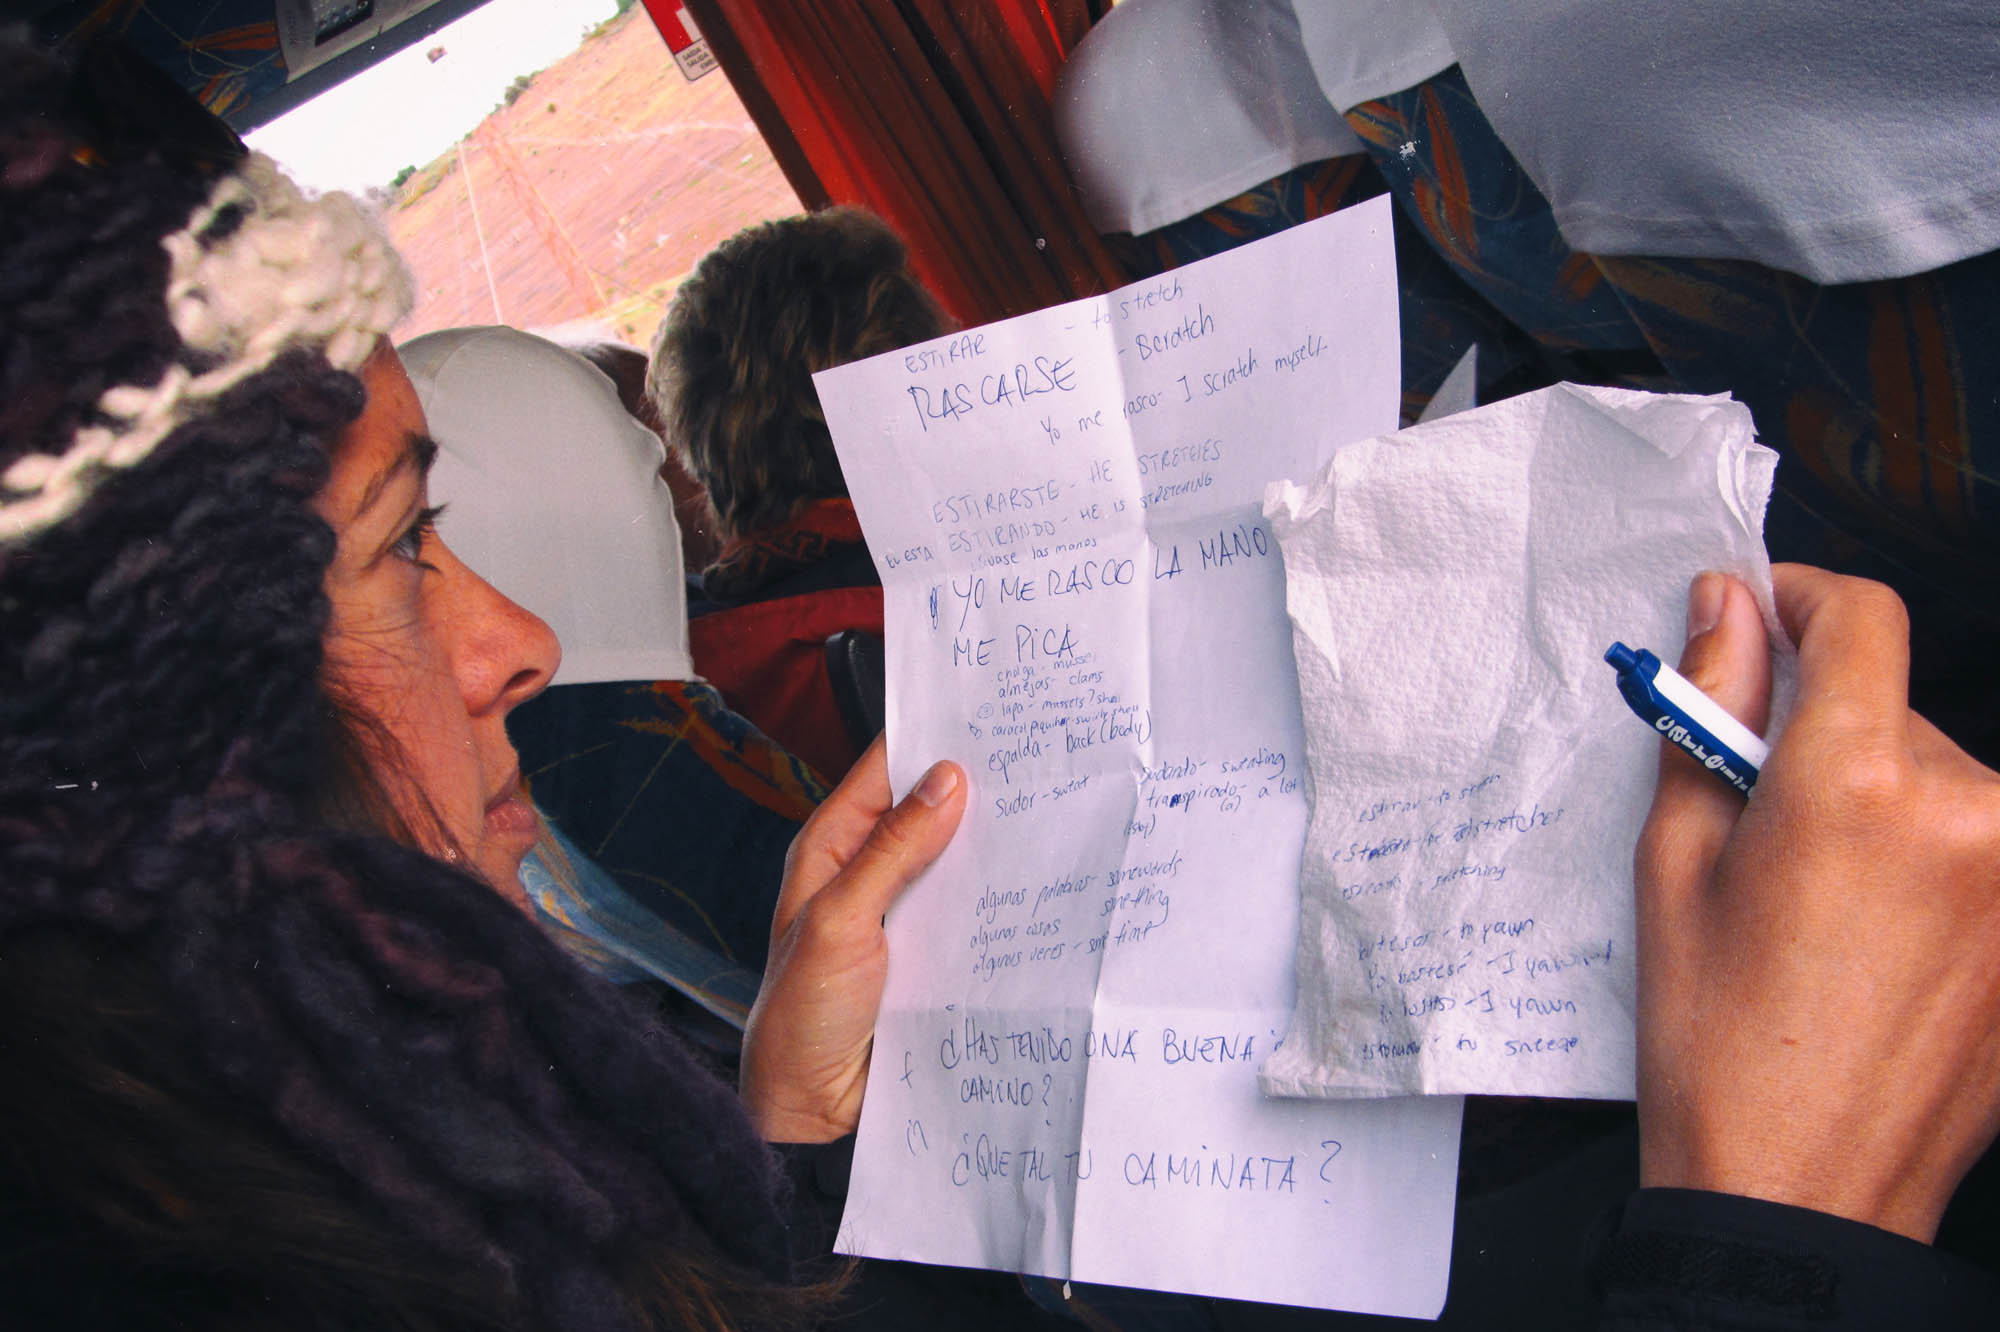 ESTIRAR - to stretch
RASCARSE - scratch
Yo me rasco - I scratch myself
ESTIRARSTE - HE STRETCIES
EL ESTA ESTIRANDO - HE IS STRETCHING
las manos
YO ME RASCO LA MANO
ME PICA
cholga - mussel
almejas - clams
lapa - mussels? shell
caracol
espalda - back (body)
sudor - sweat
sudando - sweating
transpirado - a lot
(a)
algunas palabras - some words
algunas cosas something
algunas veces - some time
¿HAS TENIDO UNA BUENA
CAMINO?
¿QUE TAL TU CAMINATA?
estirar - to
stretches
stretching
to yawn
Yo bostesé - I yawned
- I yawn
to sneeze